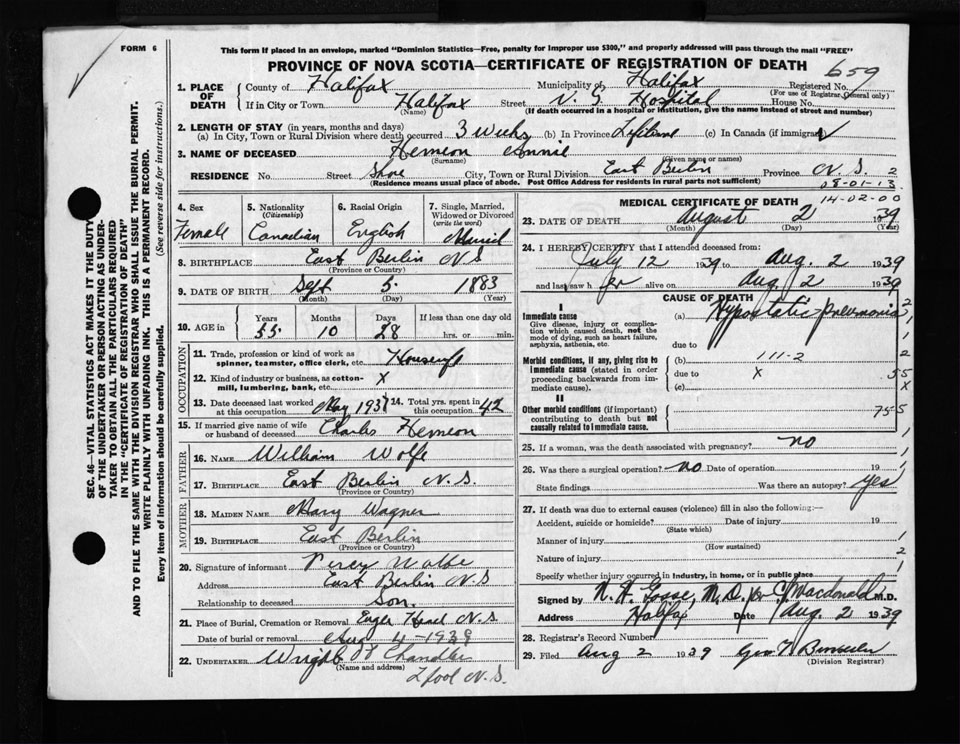 FORM 6
This form if placed in an envelope, marked "Dominion Statistics—Free, penalty for improper use $300," and properly addressed will pass through the mail "FREE"
PROVINCE OF NOVA SCOTIA—CERTIFICATE OF REGISTRATION OF DEATH
659
1. PLACE OF DEATH County of Halifax Municipality of Halifax Registered No.
(For use of Registrar General only)
If in City or Town Halifax Street V. G Hospital House No.
(Name) (If death occurred in a hospital or institution, give the name instead of street and number)
2. LENGTH OF STAY (in years, months and days)
(a) In City, Town or Rural Division where death occurred 3 weeks (b) In Province Lifetime (c) In Canada (if immigrant)
3. NAME OF DECEASED Hemeon Annie
(Surname) (Given name or names)
RESIDENCE No. Street Shore City, Town or Rural Division East Berlin Province N.S. 2
(Residence means usual place of abode. Post Office Address for residents in rural parts not sufficient) 08-01-13
SEC. 46—VITAL STATISTICS ACT MAKES IT THE DUTY
OF THE UNDERTAKER OR PERSON ACTING AS UNDER-
TAKER TO OBTAIN ALL THE PARTICULARS REQUIRED
IN THE "CERTIFICATE OF REGISTRATION OF DEATH"
AND TO FILE THE SAME WITH THE DIVISION REGISTRAR WHO SHALL ISSUE THE BURIAL PERMIT.
WRITE PLAINLY WITH UNFADING INK. THIS IS A PERMANENT RECORD.
Every item of Information should be carefully supplied. (See reverse side for instructions.)
4. Sex 5. Nationality (Citizenship) 6. Racial Origin 7. Single, Married, Widowed or Divorced (write the word)
Female Canadian English Married
8. BIRTHPLACE East Berlin N S
(Province or Country)
9. DATE OF BIRTH Sept 5. 1883
(Month) (Day) (Year)
10. AGE in Years Months Days If less than one day
55 10 28 hrs. or min.
OCCUPATION
11. Trade, profession or kind of work as spinner, teamster, office clerk, etc. Housewife
12. Kind of industry or business, as cotton-mill, lumbering, bank, etc. X
13. Date deceased last worked at this occupation May 193 14. Total yrs. spent in this occupation 42
15. If married give name of wife or husband of deceased Charles Hemeon
FATHER
16. NAME William Wolfe
17. BIRTHPLACE East Berlin N. S.
(Province or Country)
MOTHER
18. MAIDEN NAME Mary Wagner
19. BIRTHPLACE East Berlin
(Province or Country)
20. Signature of informant Percy Wolfe
Address East Berlin N S
Relationship to deceased Son.
21. Place of Burial, Cremation or Removal Eagle Head N. S.
Date of burial or removal Aug 4-1939
22. UNDERTAKER Wright Chandler
(Name and address)
L'pool N. S.
MEDICAL CERTIFICATE OF DEATH 14-02-00
23. DATE OF DEATH August 2 1939
(Month) (Day) (Year)
24. I HEREBY CERTIFY that I attended deceased from:
July 12 1939 to Aug. 2 1939
and last saw her alive on Aug. 2 1939
CAUSE OF DEATH
I
Immediate cause (a) Hypostatic Pneumonia
Give disease, injury or complication which caused death, not the mode of dying, such as heart failure, asphyxia, asthenia, etc. due to
Morbid conditions, if any, giving rise to immediate cause (stated in order proceeding backwards from immediate cause). (b) 111-2
due to X
(c)
II
Other morbid conditions (if important) contributing to death but not causally related to immediate cause.
25. If a woman, was the death associated with pregnancy? no
26. Was there a surgical operation? no Date of operation 19
State findings Was there an autopsy? Yes
27. If death was due to external causes (violence) fill in also the following:—
Accident, suicide or homicide? Date of injury 19
(State which)
Manner of injury
(How sustained)
Nature of injury
Specify whether injury occurred in industry, in home, or in public place
Signed by M.D. Macdonald M.D.
Address Halifax Aug. 2 1939
28. Registrar's Record Number
29. Filed Aug 2 1939
(Division Registrar)